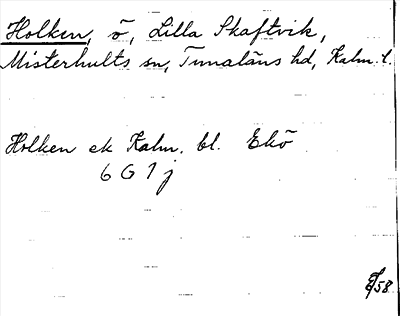 Holken, ö, Lilla Skaftvik,
Misterhults sn, Tunaläns hd, Kalm. l.
Holken ek Kalm. bl. Ekö
6 G 1 j
/58